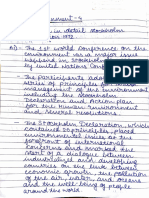 ument - 4
in detail Stockholm
1972
A1) - The 1st world Conference on the
environment as a major issue
happened in Stockholm
by United Nations Con
- The participants adop
of principles for
management of the
including the Stockholm
Declaration and Action plan
for the Human environment
- The Stockholm Declaration, which
contained 26 principles, placed
environmental issues at the
forefront of international
concerns and marked the
start of a dialogue between
industrialized and developing
countries on the link between
economic growth, the pollution
of the air, water, and oceans
and the well-being of people
around the world.